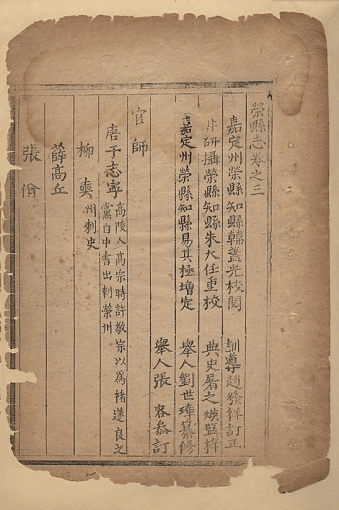 榮縣志卷之三
嘉定州榮縣知縣韓蓋光校閱 訓導趙 祥訂正
井研攝榮縣知縣朱大任重校 典史屠之 監梓
嘉定州榮縣知縣易其極增定 舉人劉世璋纂修
舉人張 容叅訂
官師
唐于志寧高陵人高宗時許敬宗以爲褚遂良之
黨白中書出刺榮州
柳奭州刺史
薛高丘
張脩